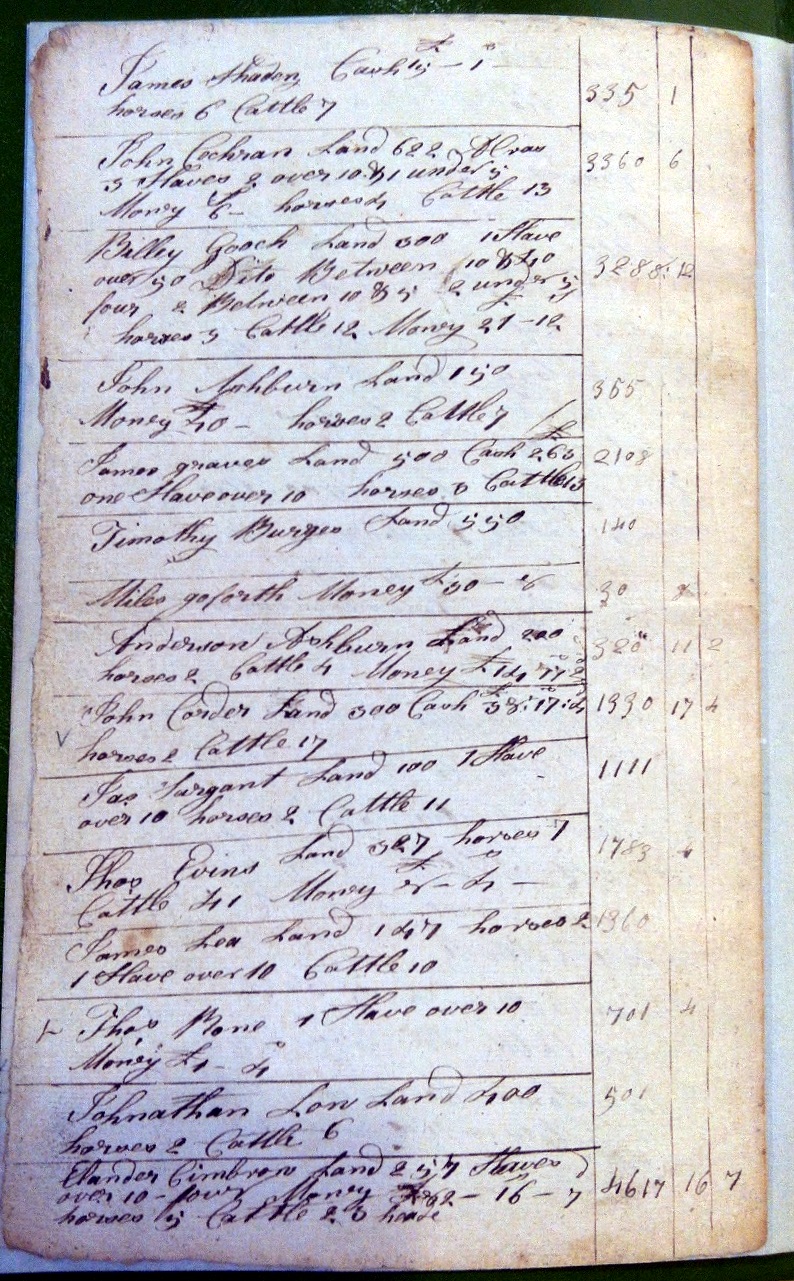 James Shaden Cash £15 – 1s –
horses 6 Cattle 7 335 1
John Cochran Land 622 Acras
3 Slaves 2 over 10 & 1 under 5 3360 6
Money £ 6 – horses 4 Cattle 13
Billey Gooch Land 300 1 Slave
over 50 Dito Between 10 & 40 3288: 12
four 2 Between 10 & 5 2 under 5
horses 3 Cattle 12 Money 21 – 12
John Ashburn Land 150 355
Money £40 – horses 2 Cattle 7
James graves Land 500 Cash £263 2108
one Slave over 10 horses 3 Cattle 13
Timothy Burges Land 550 140
Miles goforth Money £30 – 8 30 8
Anderson Ashburn Land 200 320 11 2
horses 2 Cattle 4 Money £14
John Corder Land 300 Cash £38:17:4 1330 17 4
horses 2 Cattle 17
Jas Sargant Land 100 1 Slave 1111
over 10 horses 2 Cattle 11
Thos Evins Land 327 horses 7 1783 4
Cattle 41 Money £8 – 4 –
James Lea Land 147 horses 2 1360
1 Slave over 10 Cattle 10
Thos Bone 1 Slave over 10 701 4
Money £1 – 4
Johnathan Low Land 400 501
horses 2 Cattle 6
Elander Cimbrow Land 257 Slaves
over 10 – four Money £82 – 16 – 7 4617 16 7
horses 5 Cattle 23 head